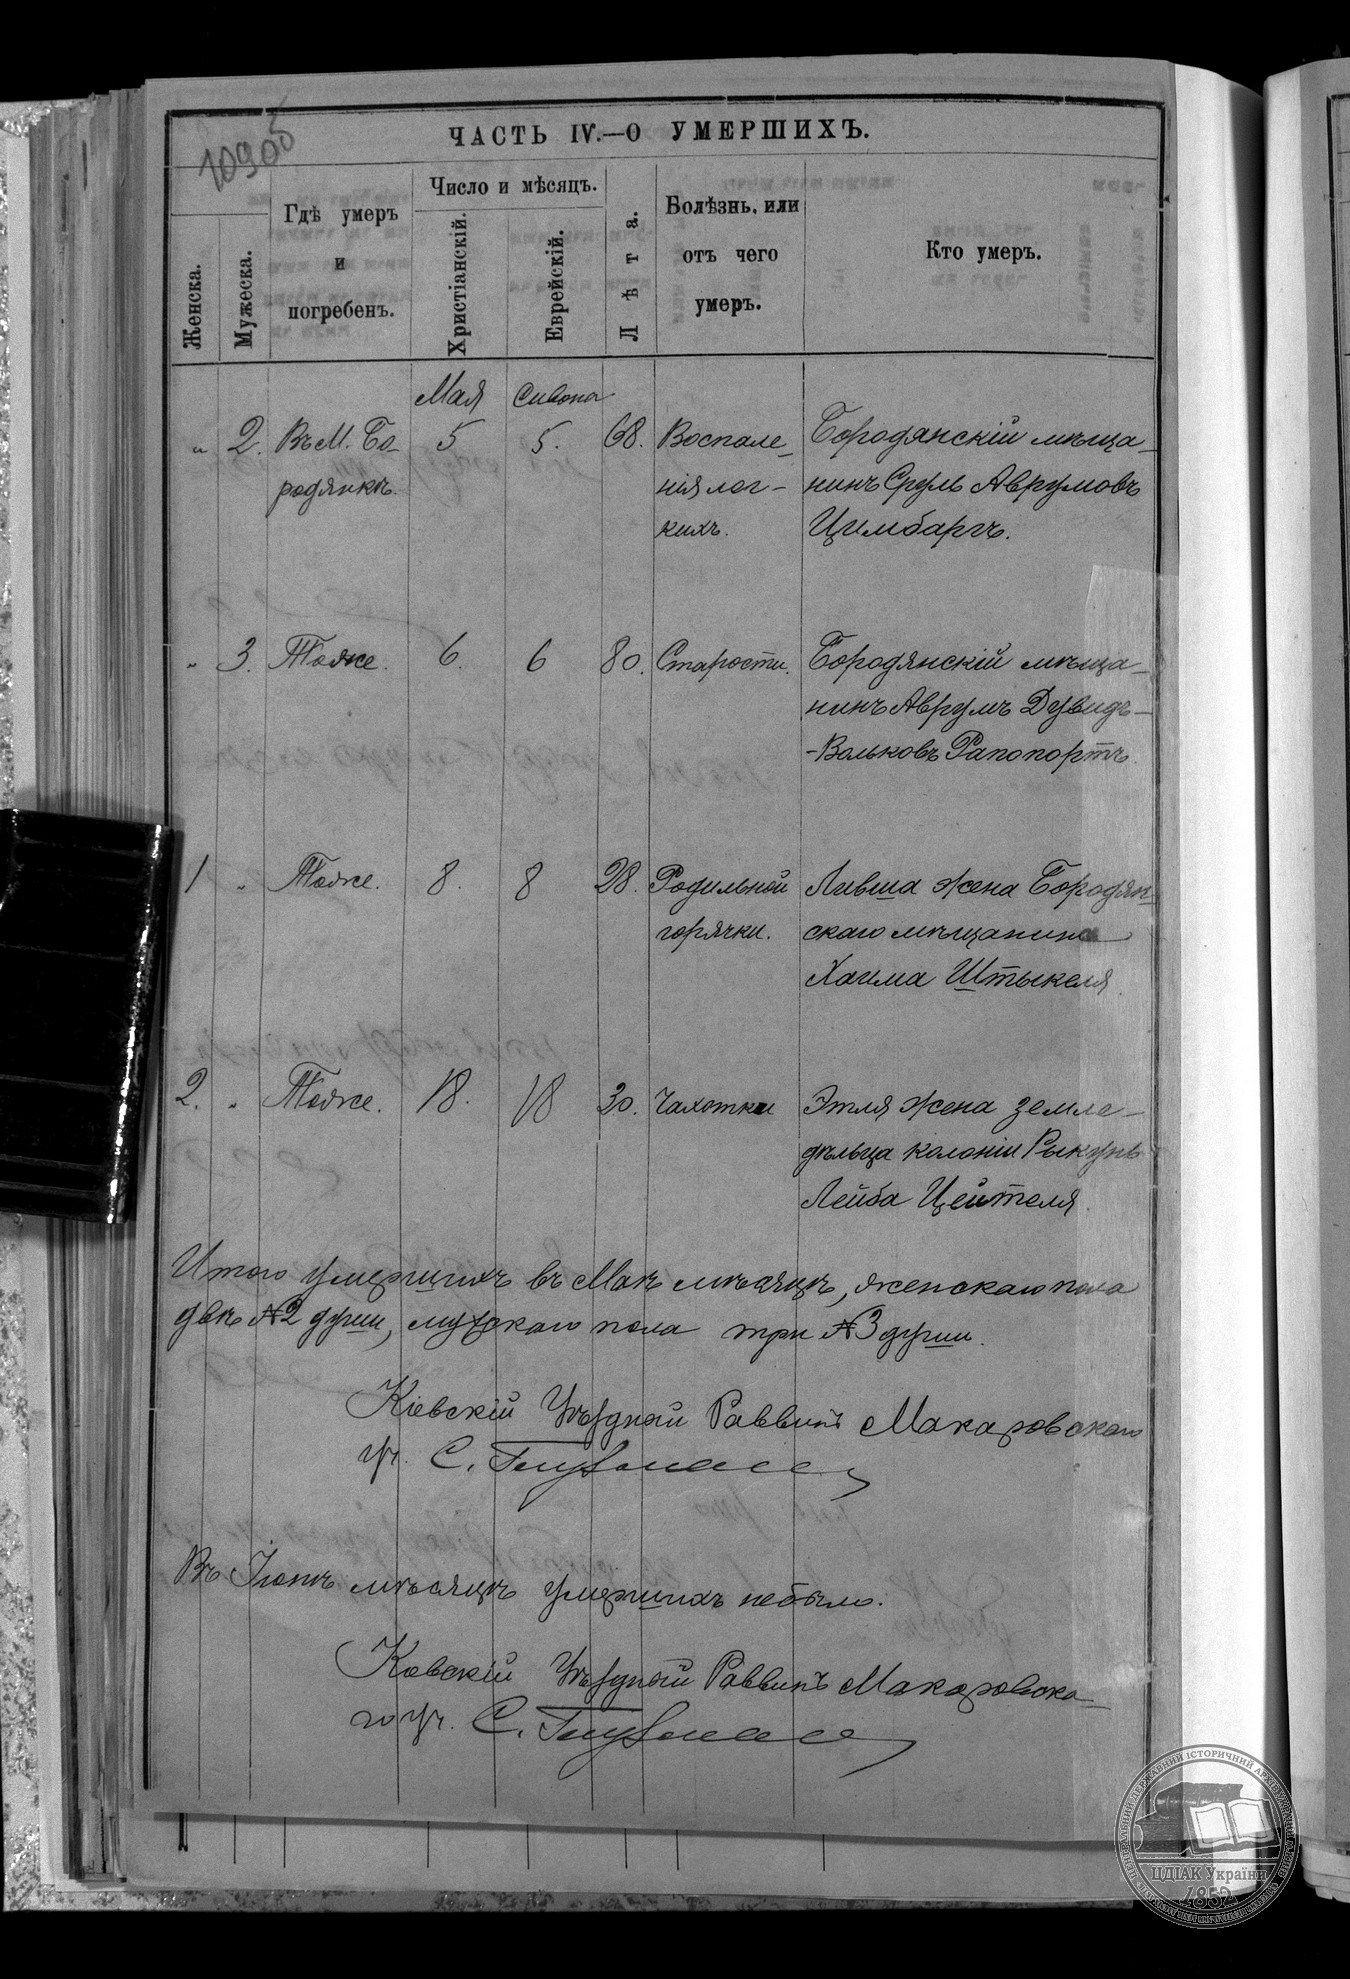 10905
ЧАСТЬ IV.—О УМЕРШИХЪ.
Женска.
Мужеска.
Гдѣ умеръ
и
погребенъ.
Число и мѣсяцъ.
Христіанскій.
Еврейскій.
Лѣта.
Болѣзнь, или
отъ чего
умеръ.
Кто умеръ.
Мая Сивона
„ 2. Въ М. Бо- 5 5. 68. Воспале- Бородянскій мѣща-
родянкѣ. нія лег- нинъ Сруль Аврумовъ
кихъ. Цимбаргъ.
„ 3. Тоже. 6. 6 80. Старости. Бородянскій мѣща-
нинъ Аврумъ Дувидъ-
-Вольковъ Рапопортъ.
1 „ Тоже. 8. 8 28. Родильной Ливша жена Бородян-
горячки. скаго мѣщанина
Хаима Штыкеля
2. „ Тоже. 18. 18 30. Чахотки Этля жена земле-
дѣльца колоніи Рыкунь
Лейба Цейтеля
Итого умершихъ въ Маѣ мѣсяцѣ, женскаго пола
двѣ №2 души, мужскаго пола три №3 души.
Кіевскій Уѣздный Раввинъ Макаровскаго
уч. С.
Въ Іюнѣ мѣсяцѣ умершихъ небыло.
Кіевскій Уѣздный Раввинъ Макаровска-
го уч. С.
ЦЕНТРАЛЬНИЙ ДЕРЖАВНИЙ ІСТОРИЧНИЙ АРХІВ УКРАЇНИ
ЦДІАК України
1852